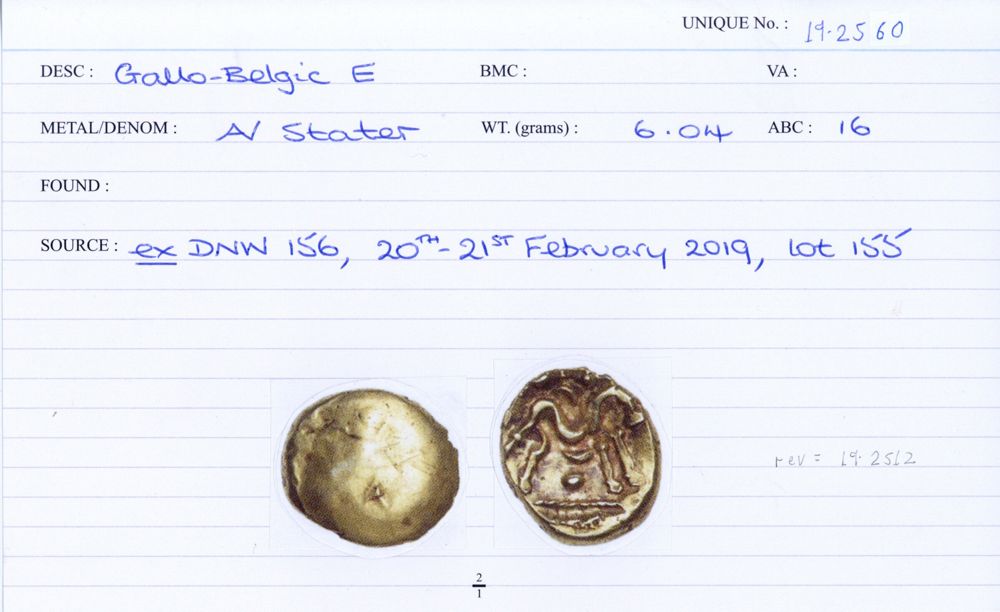 UNIQUE No. : 19.2560
DESC : Gallo-Belgic E BMC : VA :
METAL/DENOM : A/ Stater WT. (grams) : 6.04 ABC : 16
FOUND :
SOURCE : ex DNW 156, 20TH-21ST February 2019, lot 155
rev = 19.2512
2
1